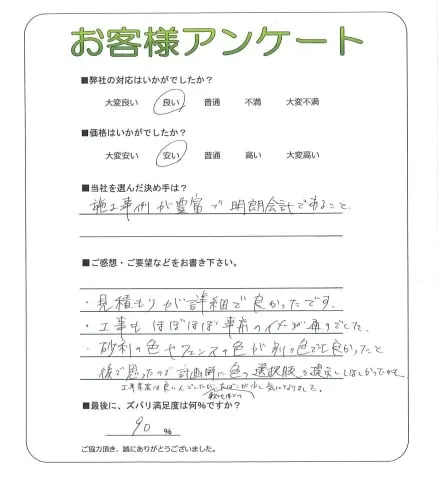 お客様アンケート
■弊社の対応はいかがでしたか？
大変良い 良い 普通 不満 大変不満
■価格はいかがでしたか？
大変安い 安い 普通 高い 大変高い
■当社を選んだ決め手は？
施工事例が豊富で明朗会計であること
■ご感想・ご要望などをお書き下さい。
・見積もりが詳細で良かったです。
・工事もほぼほぼ事前のイメージ通りでした。
・砂利の色やフェンスの色が別の色でも良かったと
後で思ったので計画時に色の選択肢を提案してほしかったかも。
工事自体は良いんでしたが、たばこが少し気になりました。
■最後に、ズバリ満足度は何%ですか？
90 %
ご協力頂き、誠にありがとうございました。